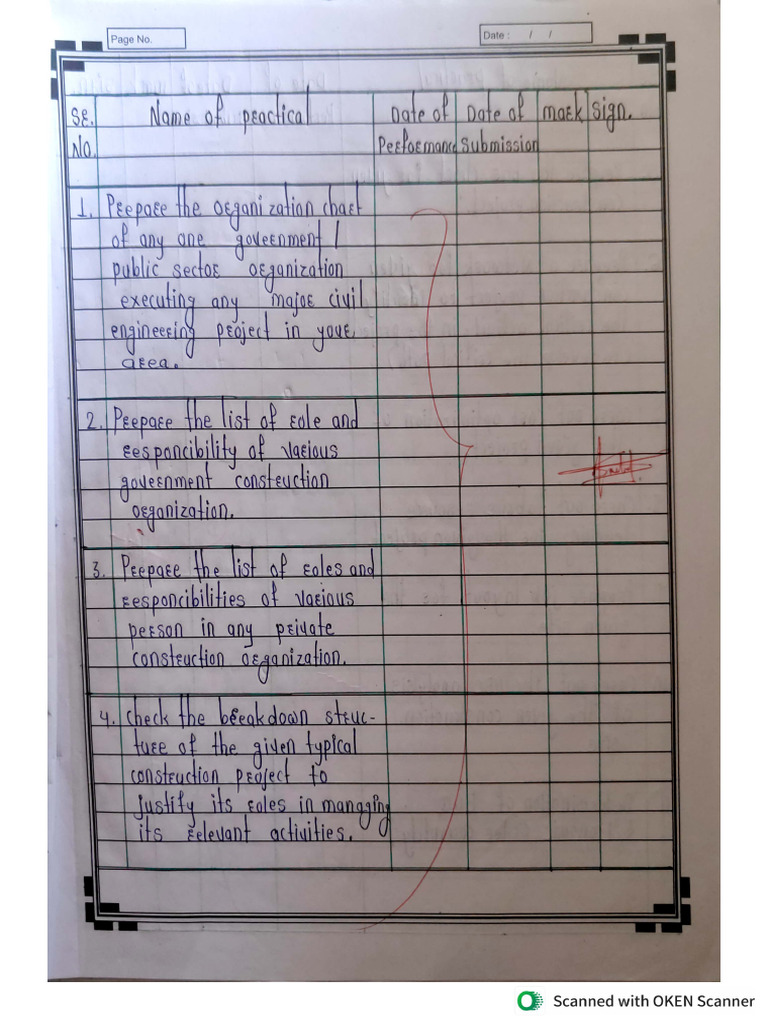 Page No.
Date : / /
Sr. Name of practical Date of Date of mark sign.
No. Performance Submission
1. Prepare the organization chart
of any one government /
public sector organization
executing any major civil
engineering project in your
area.
2. Prepare the list of role and
responcibility of various
government construction
organization.
3. Prepare the list of roles and
responcibilities of various
person in any private
construction organization.
4. Check the breakdown struc-
ture of the given typical
construction project to
justify its roles in managing
its relevant activities.
Scanned with OKEN Scanner